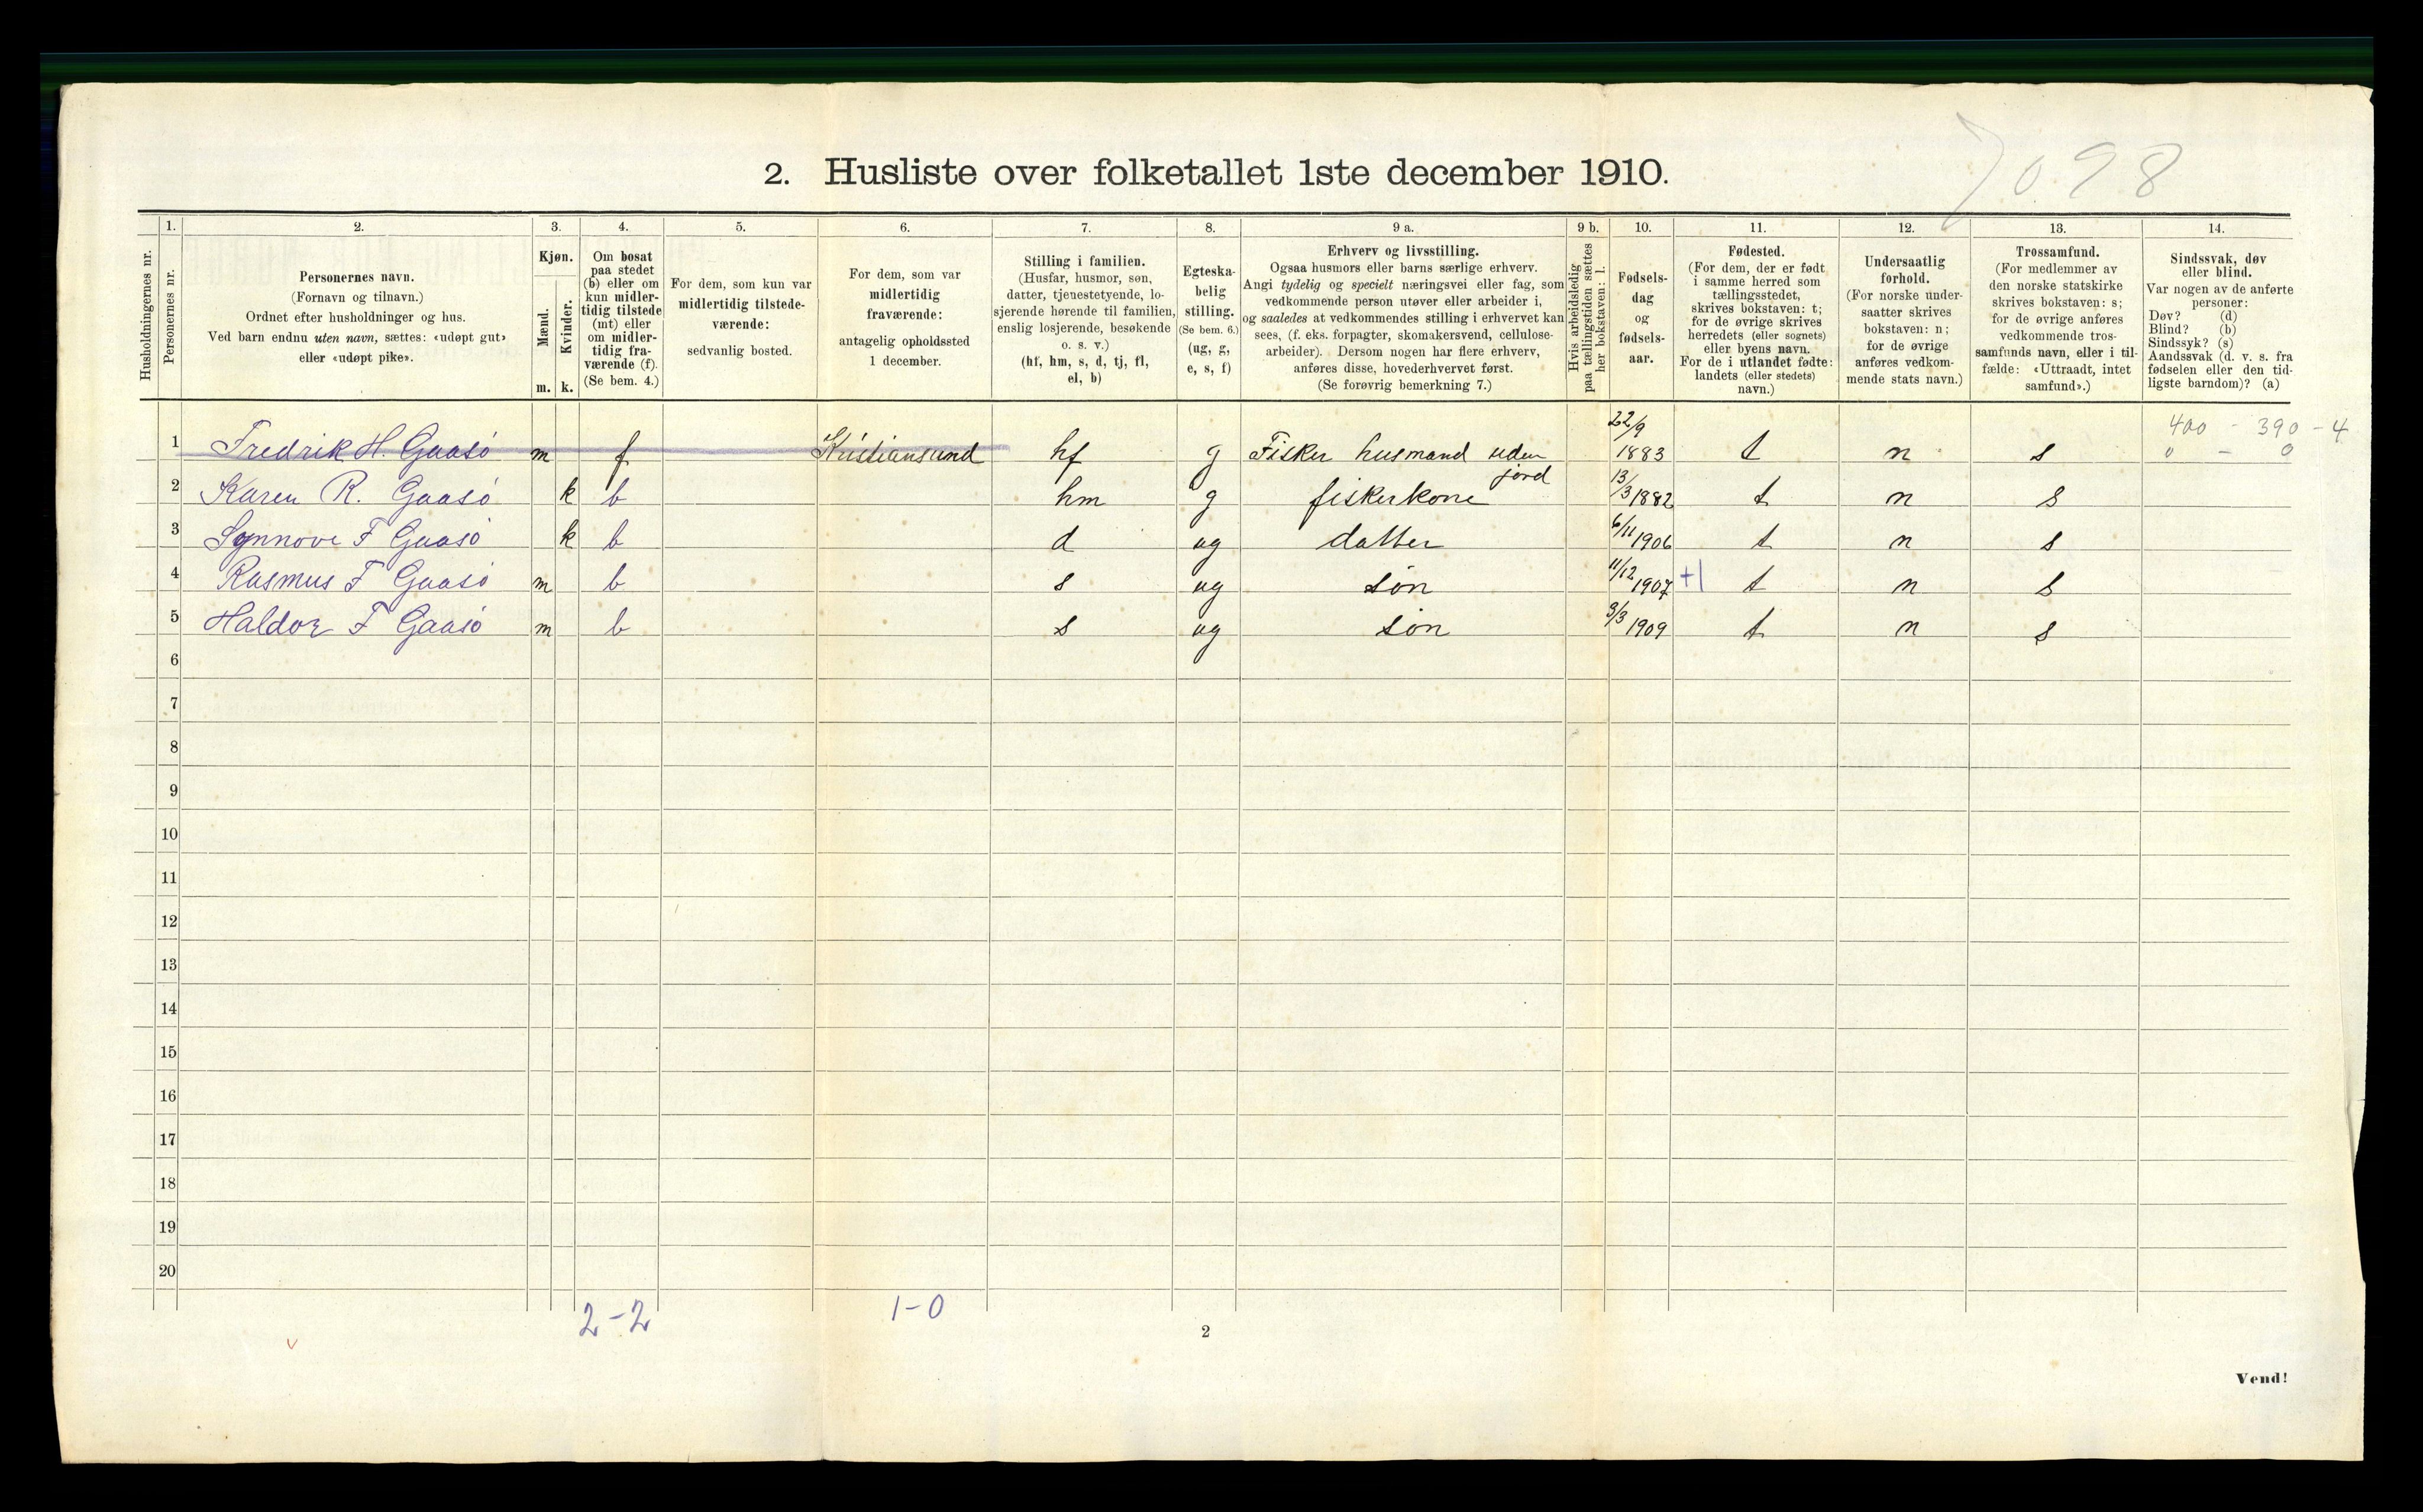 7098
2. Husliste over folketallet 1ste december 1910.
Husholdningernes nr.
1.
Personernes nr.
2.
Personernes navn.
(Fornavn og tilnavn.)
Ordnet efter husholdninger og hus.
Ved barn endnu uten navn, sættes: «udøpt gut»
eller «udøpt pike».
3.
Kjøn.
Mænd.
Kvinder.
m. k.
4.
Om bosat
paa stedet
(b) eller om
kun midler-
tidig tilstede
(mt) eller
om midler-
tidig fra-
værende (f).
(Se bem. 4.)
5.
For dem, som kun var
midlertidig tilstede-
værende:
sedvanlig bosted.
6.
For dem, som var
midlertidig
fraværende:
antagelig opholdssted
1 december.
7.
Stilling i familien.
(Husfar, husmor, søn,
datter, tjenestetyende, lo-
sjerende hørende til familien,
enslig losjerende, besøkende
o. s. v.)
(hf, hm, s, d, tj, fl,
el, b)
8.
Egteska-
belig
stilling.
(Se bem. 6.)
(ug, g,
e, s, f)
9 a.
Erhverv og livsstilling.
Ogsaa husmors eller barns særlige erhverv.
Angi tydelig og specielt næringsvei eller fag, som
vedkommende person utøver eller arbeider i,
og saaledes at vedkommendes stilling i erhvervet kan
sees, (f. eks. forpagter, skomakersvend, cellulose-
arbeider). Dersom nogen har flere erhverv,
anføres disse, hovederhvervet først.
(Se forøvrig bemerkning 7.)
9 b.
Hvis arbeidsledig
paa tællingstiden sættes
her bokstaven: l.
10.
Fødsels-
dag
og
fødsels-
aar.
11.
Fødested.
(For dem, der er født
i samme herred som
tællingsstedet,
skrives bokstaven: t;
for de øvrige skrives
herredets (eller sognets)
eller byens navn.
For de i utlandet fødte:
landets (eller stedets)
navn.)
12.
Undersaatlig
forhold.
(For norske under-
saatter skrives
bokstaven: n;
for de øvrige
anføres vedkom-
mende stats navn.)
13.
Trossamfund.
(For medlemmer av
den norske statskirke
skrives bokstaven: s;
for de øvrige anføres
vedkommende tros-
samfunds navn, eller i til-
fælde: «Uttraadt, intet
samfund».)
14.
Sindssvak, døv
eller blind.
Var nogen av de anførte
personer:
Døv? (d)
Blind? (b)
Sindssyk? (s)
Aandssvak (d. v. s. fra
fødselen eller den tid-
ligste barndom)? (a)
400 - 390 - 4
0 - 0
1 Fredrik H. Gaasø m f Kristiansund hf g Fisker husmand uden jord 22/9 1883 t n s
2 Karen R. Gaasø k b hm g fiskerkone 13/3 1882 t n s
3 Synnove F Gaasø k b d ug datter 6/11 1906 t n s
4 Rasmus F Gaasø m b s ug søn 11/12 1907 +1 t n s
5 Haldor F Gaasø m b s ug søn 3/3 1909 t n s
6
7
8
9
10
11
12
13
14
15
16
17
18
19
20
2-2 1-0
2
Vend!